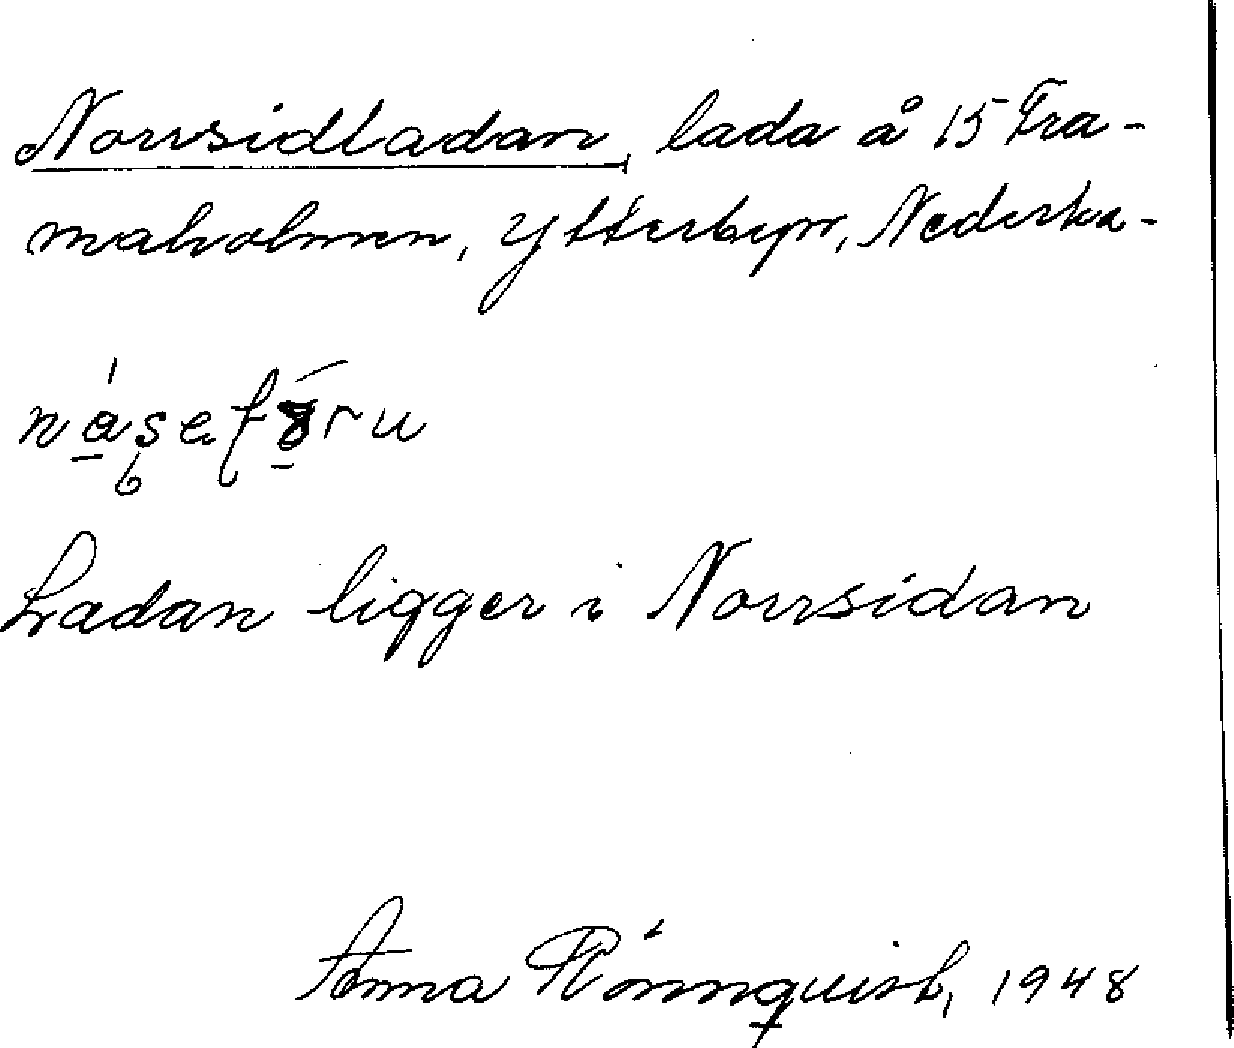 Norrsidladan, lada å 15 Fra-
maholmen, Ytterbyn, Nederka-
Ladan ligger i Norrsidan
Anna Rönnquist, 1948